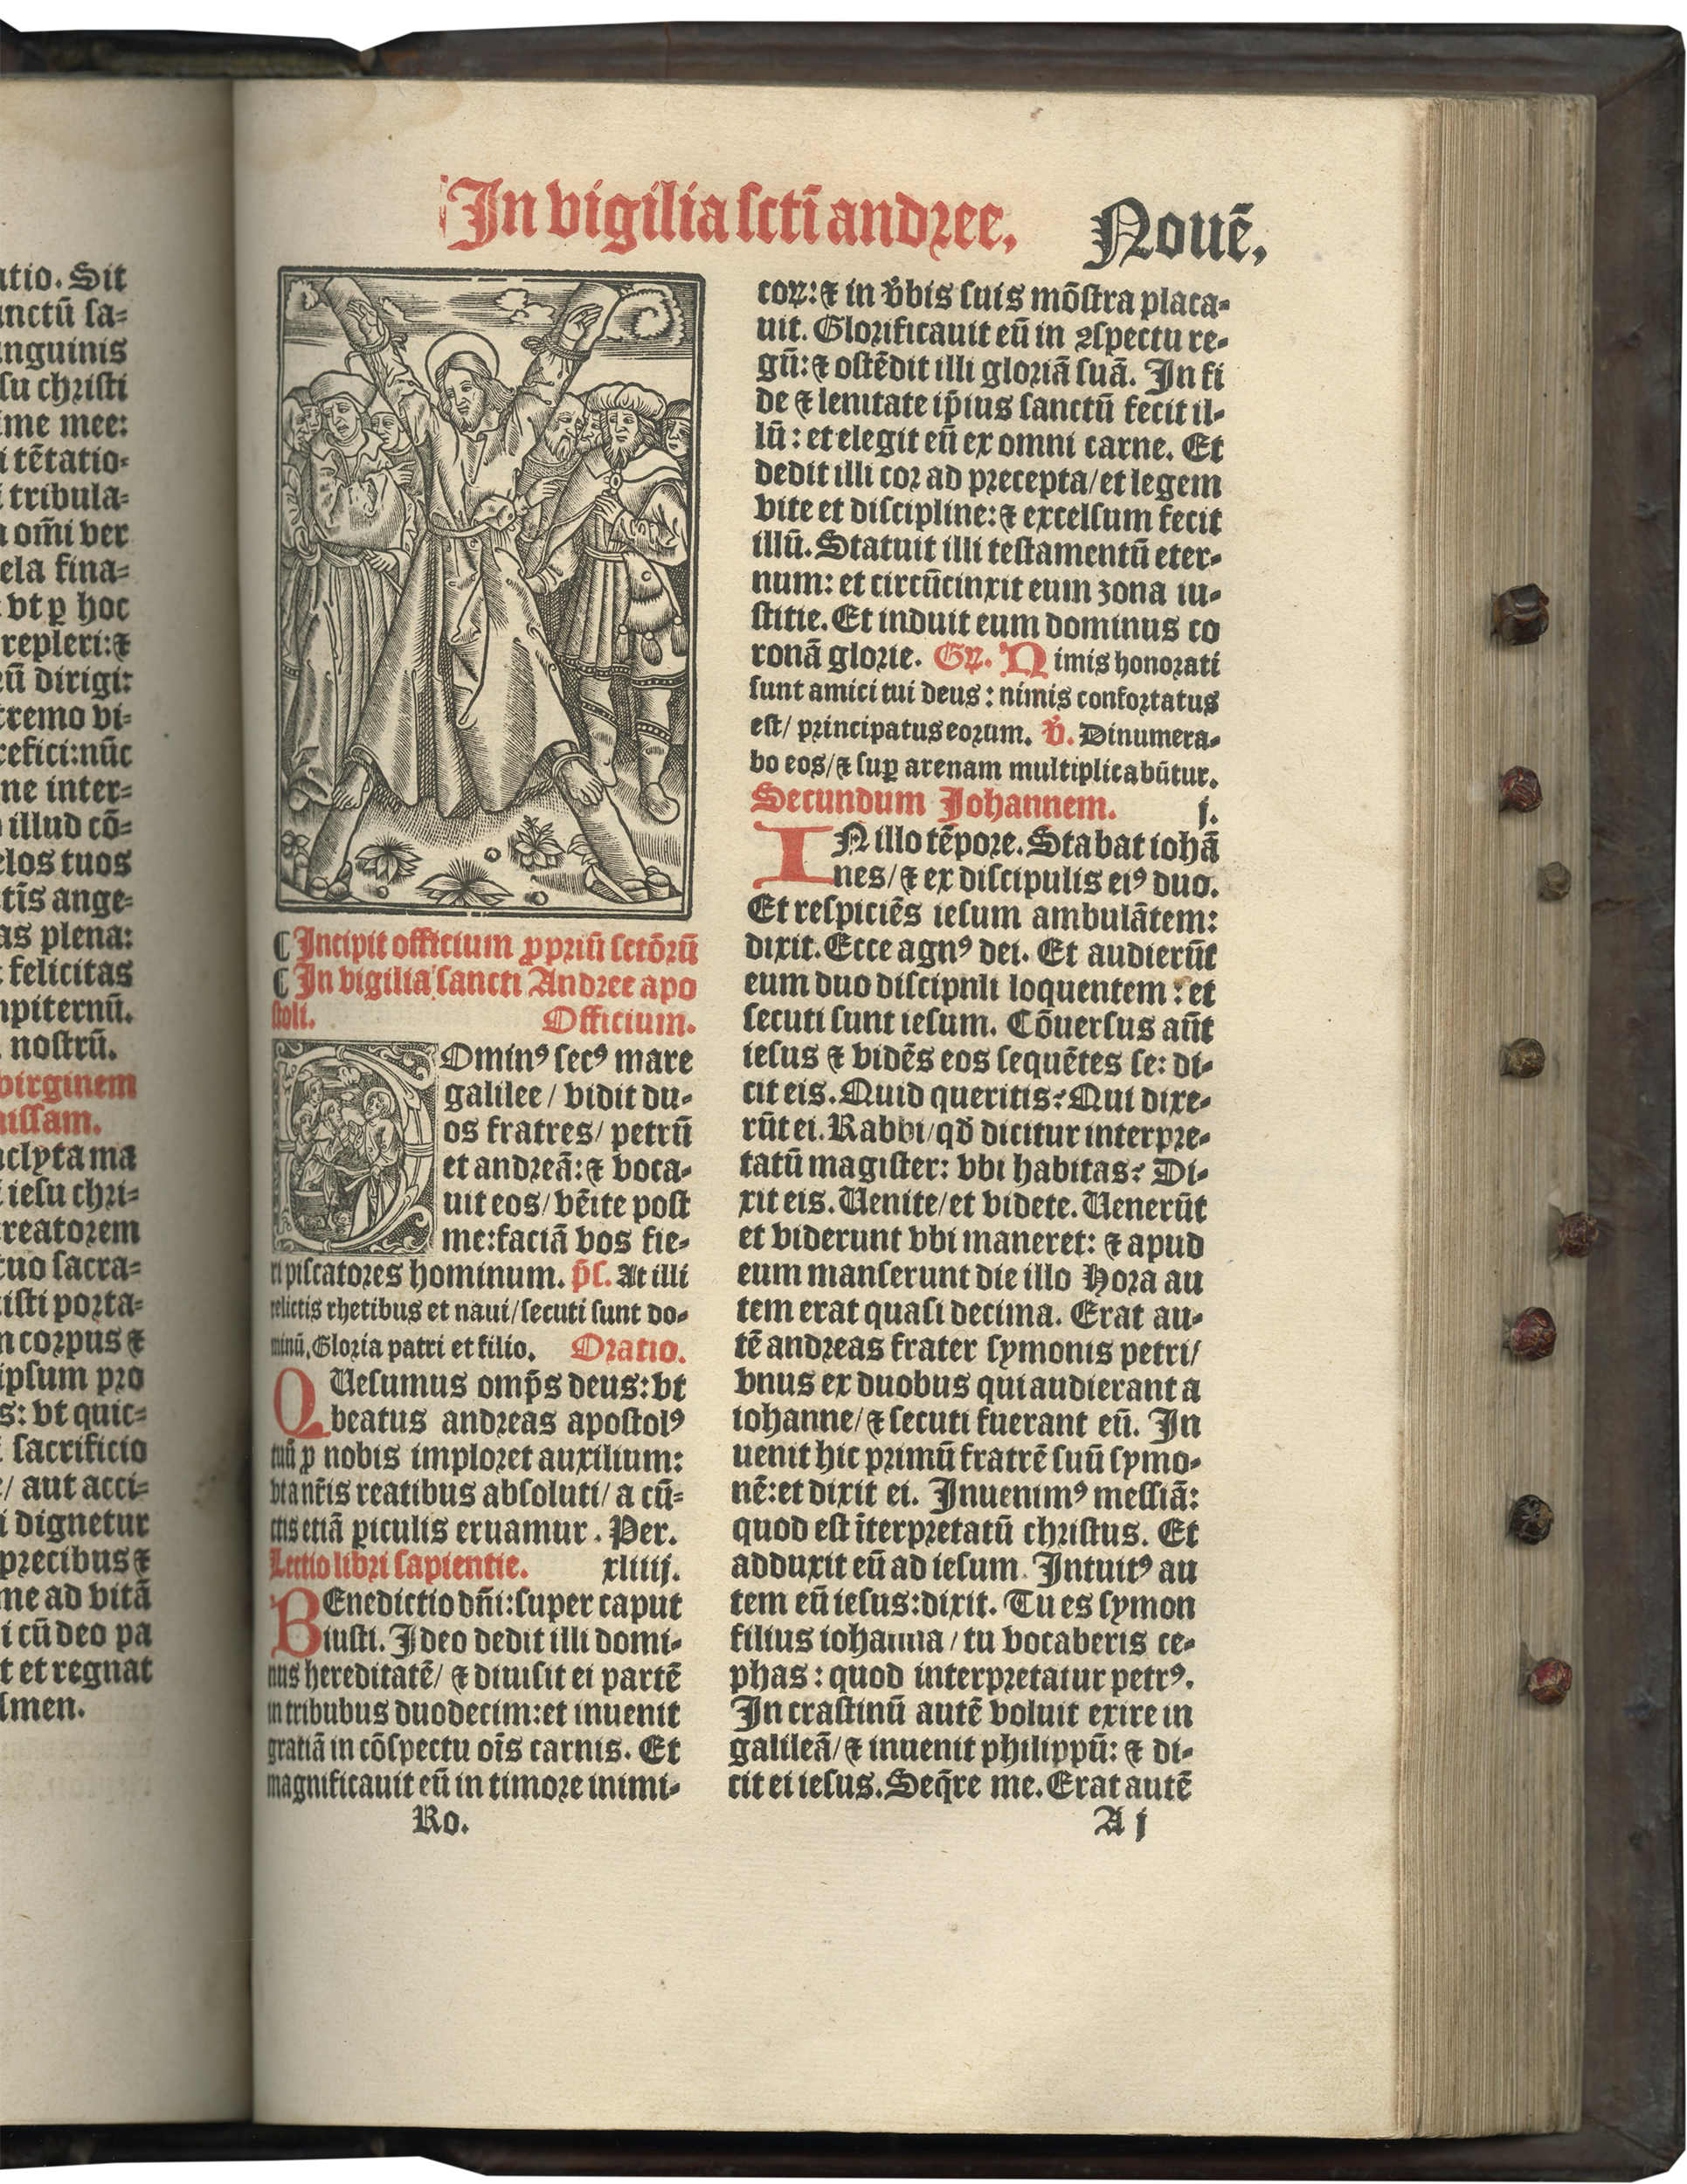 atio. Sit
anctū sa-
anguinis
su christi
ime mee:
i tētatio-
tribula-
a om̄i ver
ela fina-
vt ꝑ hoc
repleri: ⁊
rū dirigi:
tremo vi-
refici: nūc
ne inter-
illud cō-
elos tuos
tīs ange-
as plena:
felicitas
npiternū.
nostrū.
virginem
missam.
nclyta ma
iesu chri-
reatorem
tuo sacra-
isti porta-
n corpus ⁊
ipsum pro
s: vt quic-
sacrificio
/ aut acci-
i dignetur
precibus ⁊
me ad vitā
i cū deo pa
t et regnat
Amen.
In vigilia sctī andree. Nouē.
¶ Incipit officium ꝓpriū sctōrū
¶ In vigilia sancti Andree apo
stoli. Officium.
Ominꝰ secꝰ mare
galilee / vidit du-
os fratres / petrū
et andreā: ⁊ voca-
uit eos / vēite post
me: faciā vos fie-
ri piscatores hominum. p̄s. At illi
relictis rhetibus et naui / secuti sunt do-
minū. Gloria patri et filio. Oratio.
QUesumus omp̄s deus: vt
beatus andreas apostolꝰ
tuū ꝓ nobis imploret auxilium:
vt a nr̄is reatibus absoluti / a cū-
ctis etiā ꝑiculis eruamur. Per.
Lectio libri sapientie. xliiij.
BEnedictio dn̄i: super caput
iusti. Ideo dedit illi domi-
nus hereditatē / ⁊ diuisit ei partē
in tribubus duodecim: et inuenit
gratiā in cōspectu oīs carnis. Et
magnificauit eū in timore inimi-
Ro.
coꝝ: ⁊ in v̄bis suis mōstra placa-
uit. Glorificauit eū in ꝯspectu re-
gū: ⁊ ostēdit illi gloriā suā. In fi
de ⁊ lenitate ip̄ius sanctū fecit il-
lū: et elegit eū ex omni carne. Et
dedit illi cor ad precepta / et legem
vite et discipline: ⁊ excelsum fecit
illū. Statuit illi testamentū eter-
num: et circūcinxit eum zona iu-
stitie. Et induit eum dominus co
ronā glorie. Gꝝ. Nimis honorati
sunt amici tui deus: nimis confortatus
est / principatus eorum. v̄. Dinumera-
bo eos / ⁊ suꝑ arenam multiplicabūtur.
Secundum Johannem. j.
IN illo tēpore. Stabat iohā
nes / ⁊ ex discipulis eiꝰ duo.
Et respiciēs iesum ambulātem:
dixit. Ecce agnꝰ dei. Et audierūt
eum duo discipnli loquentem: et
secuti sunt iesum. Cōuersus aūt
iesus ⁊ vidēs eos sequētes se: di-
cit eis. Quid queritis? Qui dixe-
rūt ei. Rabbi / qđ dicitur interpre-
tatū magister: vbi habitas? Di-
xit eis. Uenite / et videte. Uenerūt
et viderunt vbi maneret: ⁊ apud
eum manserunt die illo Hora au
tem erat quasi decima. Erat au-
tē andreas frater symonis petri /
vnus ex duobus qui audierant a
iohanne / ⁊ secuti fuerant eū. In
uenit hic primū fratrē suū symo-
nē: et dixit ei. Inuenimꝰ messiā:
quod est īterpretatū christus. Et
adduxit eū ad iesum. Intuitꝰ au
tem eū iesus: dixit. Tu es symon
filius iohanna / tu vocaberis ce-
phas: quod interpretatur petrꝰ.
In crastinū autē voluit exire in
galileā / ⁊ inuenit philippū: ⁊ di-
cit ei iesus. Seq̄re me. Erat autē
A j